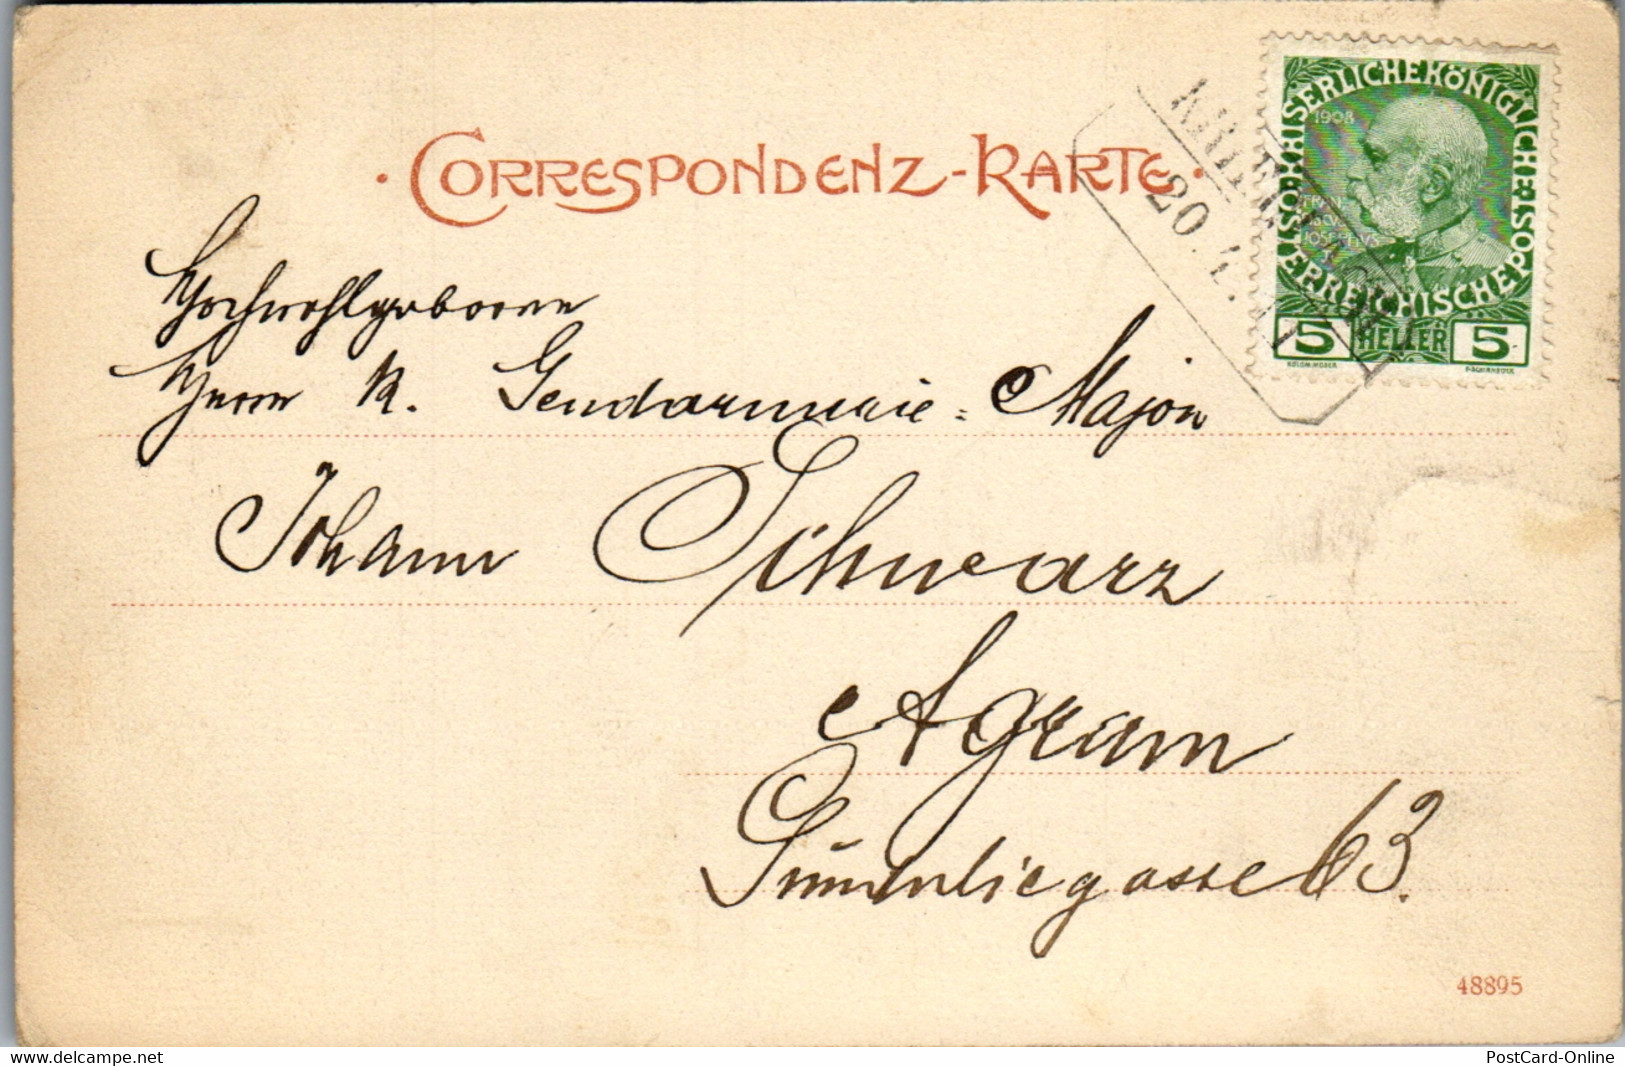 · CORRESPONDENZ-KARTE ·
KAISERLICHE KÖNIGLICHE
ÖSTERREICHISCHE POST
1908
JOSEPHUS
5 HELLER 5
20.
Hochwohlgeboren
Herrn K. Gendarmerie = Major
Johann Schwarz
Agram
63.
48895
delcampe.net
PostCard-Online